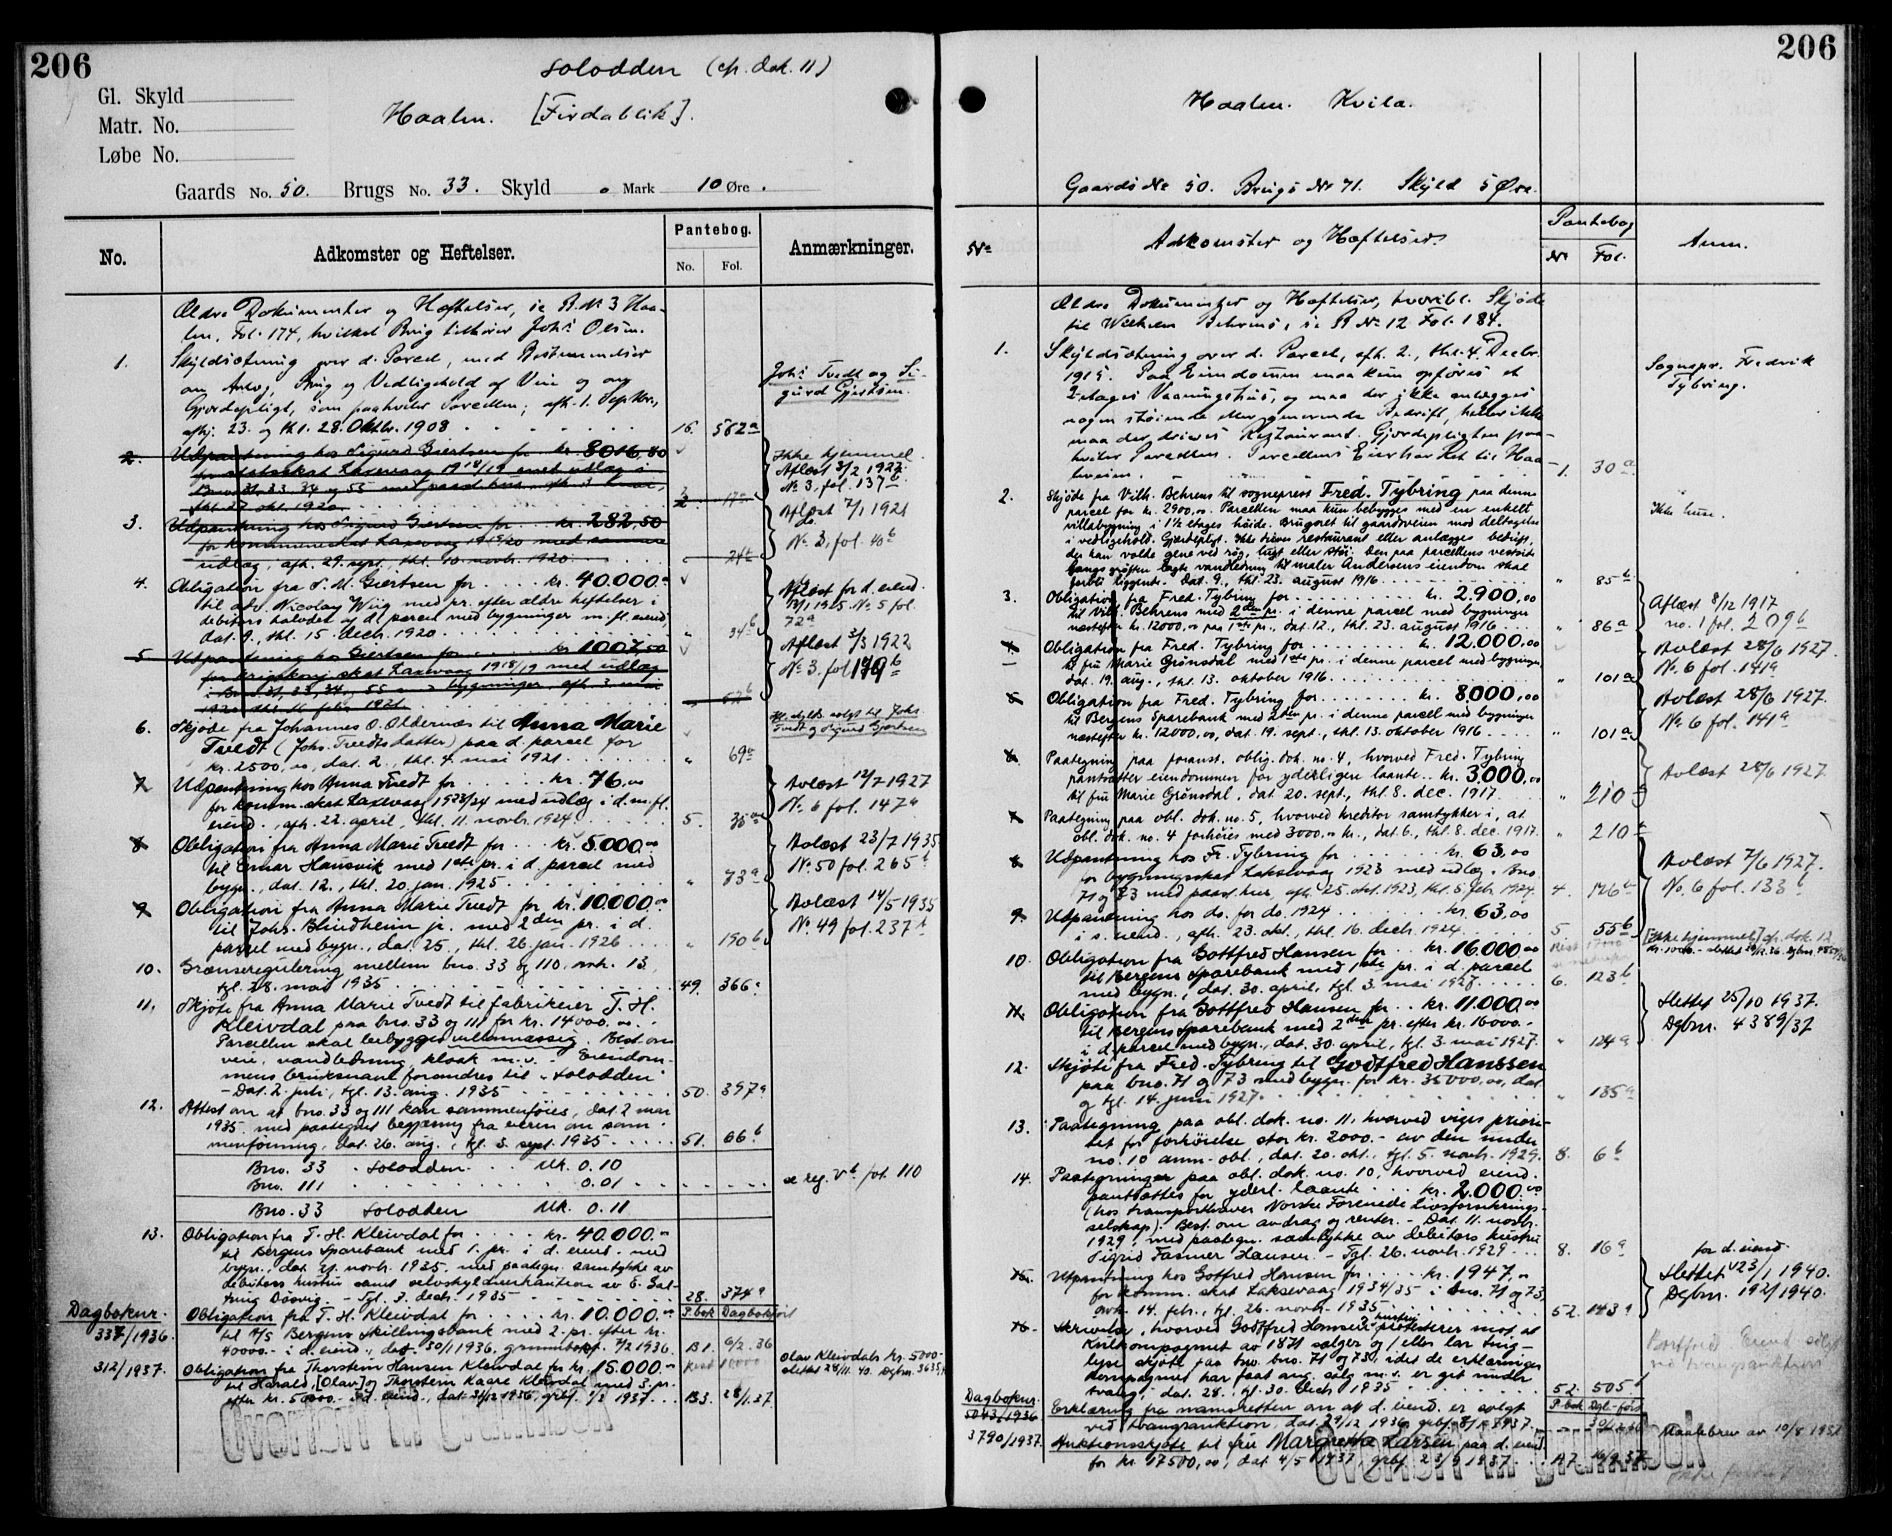 206
Solodden (cfr. dok. 11)
Gl. Skyld
Matr. No.
Haalen. [Firdablik].
Løbe No.
Gaards No. 50. Brugs No. 33. Skyld 0 Mark 10 Øre.
No. Adkomster og Heftelser. Pantebog. No. Fol. Anmærkninger.
Ældre Dokumenter og Hæftelser, se B. No 3 Haa-
len, Fol. 174, hvilket Brug tilhører Johs Olsen.
1. Skyldsætning over d. Parcel, med Bestemmelser
om Anlæg, Brug og Vedligehold af Vei og om
Gjerdepligt, som paahviler Parcellen; afh. 1. Septbr.,
afhj. 23. og thl. 28. Oktbr. 1908 16. 582a
Johs Tvedt og Si-
gurd Gjertsen.
2. Udpantning hos Sigurd Giertsen for kr. 8016,80
for statsskat Laxevaag 1918/19 med udlæg i
Bno 31, 33, 34 og 55 med paast. hus, afh. 3
thl. 27 okt. 1920
Ikke hjemmel.
Aflæst 3/2 1922
No 3. fol. 137b
3. Udpantning hos Sigurd Giertsen for kr. 282,50
for kommuneskat Laxevaag 1919/20 med samme
udlæg, afh. 29. sept., thl. 10. novb. 1920
Aflæst 7/1 1921
No 3, fol. 40b
4. Obligation fra S. M. Giertsen for kr. 40.000.
til adv. Nicolay Wiig med pr. efter ældre heftelser i
debitors halvdel af d. parcel med bygninger m. fl. eiend.
dat. 9., thl. 15. decb. 1920 " 34b
Aflæst for d. eiend.
1925. No 5 fol.
72a
5. Udpantning hos Giertsen for kr. 1007,50
for krigskonj. skat Laxevaag 1918/19 med udlæg
i Bno 31, 33, 34, 55 bygninger, afh. 3 mai
Aflæst 3/3 1922
No 3. fol 149b
6. Skjøde fra Johannes O. Oldernes til Anna Marie
Tvedt (Johs. Tvedts datter) paa d. parcel for
kr. 2500,00, dat. 2., thl. 4. mai 1921 " 69a
7. Udpantning hos Anna Tvedt for kr. 76,00
for komm. skat Laxevaag 1923/24 med udlæg i d. m. fl.
eiend., afh. 22. april, thl. 11. novb. 1924 5.
Avlæst 12/7 1927
No. 6 fol. 147a
8. Obligation fra Anna Marie Tvedt for kr. 5.000.00
til Einar Hausvik med 1ste pr. i d. parcel med
bygn., dat. 12., thl. 20. jan. 1925 " 73a
Avlæst 23/7 1935
No. 50 fol. 265b
9. Obligation fra Anna Marie Tvedt for kr. 10.000.00
til Johs. Blindheim jr. med 2den pr. i d.
parcel med bygn., dat. 25., thl. 26. jan. 1926 " 190b
Avlæst 14/5 1935
No. 49 fol. 237b
10. Grænseregulering mellem bno. 33 og 110, avh. 13,
tgl. 28. mai 1935 49. 366a
11. Skjøte fra Anna Marie Tvedt til fabrikeier T. H.
Kleivdal paa bno. 33 og 111 for kr. 14000.00.
Parcellen skal bebygges villamæssig. Best. om
veie, vandledning, kloak m. v. Eiendom-
mens bruksnavn forandres til "Solodden"
- Dat. 2. juli, tgl. 13. aug. 1935 50. 397a
12. Attest om at bno. 33 og 111 kan sammenføies, dat. 2 mai
1935, med paategnet begjæring fra eieren om sam-
menføining, dat. 26. aug., tgl. 3. sept. 1935 51. 66b
Bno. 33 Solodden Mk. 0.10
Bno. 111 0.01
se reg. Vb fol. 110
Bno. 33 Solodden Mk. 0.11
13. Obligation fra T. H. Kleivdal for kr. 40.000.00
til Bergens Sparebank med 1. pr. i d. eiend. med
bygn., dat. 21. novb. 1935, med paategn. samtykke av
debitors hustru samt selvskyldnerkaution av
- Tgl. 3. decb. 1935 28. 374a
Dagboknr. P. bok Dagbokført
337/1936. Obligation fra T. H. Kleivdal for kr. 10.000.00
til A/S Bergens Skillingsbank med 2. pr. efter kr.
40000.- i d. eiend., dat. 30/1 1936, grunnbokf. 6/2 1936. B1. 6/2. 36
312/1937. Obligation fra Thorstein Hansen Kleivdal for kr. 15.000.00
til Harald, [Olav] og Thorstein Kaare Kleivdal med 3. pr.
efter kr. 50000.- i d. eiend., dat. 31/12 1936, grbf. 1937 B3. 28/1. 37
Olav Kleivdals kr. 5000.-
slettet 28/11. 40. Dgbnr. 3635/
Overført til grunnbok
206
Haalen. Kvila.
Gaards No 50. Brugs No 71. Skyld 5 Øre.
No Adkomster og Hæftelser. Pantebog No Fol. Anm.
Ældre Dokumenter og Hæftelser, hvoribl. Skjøde
til Wilhelm Behrens, se B No 12 Fol. 184.
1. Skyldsætning over d. Parcel, afh. 2., thl. 4. Decbr.
1915. Paa Eiendommen maa kun opføres et
2 etages Vaaningshus, og maa der ikke anlægges
nogen støiende eller generende Bedrift, heller ikke
maa der drives Restaurant. Gjerdepligten paa-
hviler Parcellen. Parcellens Eier har Ret til Haa-
lveien. 1. 30a
Sognepr. Fredrik
Tybring.
2. Skjøde fra Vilh. Behrens til sogneprest Fred. Tybring paa denne
parcel for kr. 2900,00. Parcellen maa kun bebygges med en enkelt
villabygning i 1½ etages høide. Brugsret til gaardsveien mod deltagelse
i vedligehold. Gjerdepligt. Ikke drives restaurant eller anlægges bedrift,
der kan volde gene ved røg, lugt eller støi. Den paa parcellens vestside
langs grøften lagte vandledning til maler Andersens eiendom skal
forbli liggende. Dat. 9., thl. 23. august 1916 " 85b
Ikke huse.
3. Obligation fra Fred. Tybring for kr. 2.900,00
til Vilh. Behrens med 2den pr. i denne parcel med bygninger
næstefter kr. 12000,00 paa 1ste pr., dat. 12., thl. 23. august 1916 " 86a
Aflæst 8/12 1917
no. 1 fol. 209b
4. Obligation fra Fred. Tybring for kr. 12.000.00
til fru Marie Grønsdal med 1ste pr. i denne parcel med bygninger,
dat. 19. aug., thl. 13. oktober 1916 " 101a
Avlæst 28/6 1927.
No. 6 fol. 141a
5. Obligation fra Fred. Tybring for kr. 8.000,00
til Bergens Sparebank med 2den pr. i denne parcel med bygninger
næstefter kr. 12000,00, dat. 19. sept., thl. 13. oktober 1916 " 101a
Avlæst 28/6 1927.
No 6 fol. 141a
6. Paategning paa foranst. oblig. dok. no. 4, hvorved Fred. Tybring
pantsætter eiendommen for yderligere laante kr. 3.000,00
til fru Marie Grønsdal, dat. 20. sept., thl. 8. dec. 1917 " 210
Avlæst 28/6 1927.
7. Paategning paa obl. dok. no. 5, hvorved kreditor samtykker i, at
obl. dok. no. 4 forhøies med 3000,00 kr., dat. 6., thl. 8. dec. 1917. " 210
8. Udpantning hos Fr. Tybring for kr. 63,00
for bygningsskat Laksevaag 1923 med udlæg i Bno.
71 og 73 med paast. hus, afh. 25. okt. 1923, thl. 5. feb. 1924. 4.
Avlæst 7/6 1927.
No. 6 fol. 133b
9. Udpantning hos do. for do. 1924 kr. 63,00
i s. eiend., afh. 23. okt., thl. 16. decb. 1924 5 55b
10. Obligation fra Gottfred Hansen for kr. 16.000.00
til Bergens Sparebank med 1ste pr. i d. parcel
med bygn., dat. 30. april, tgl. 3. mai 1927 6. 123b
[Ikke hjemmel] cfr. dok. 12
11. Obligation fra Gottfred Hansen for kr. 11.000.00
til Bergens Sparebank med 2den pr. efter kr. 16000.-
i d. parcel med bygn., dat. 30. april, tgl. 3. mai 1927. " 124a
Slettet 25/10 1937.
Dgbnr. 4389/37
12. Skjøte fra Fred. Tybring til Godtfred Hanssen
paa bno. 71 og 73 med bygn. for kr. 35000,00, dat.
og tgl. 14. juni 1927 " 135a
13. Paategning paa obl. dok. no. 11, hvorved viges priori-
tet for forhøielse stor kr. 2000.- av den under
no. 10 anm. obl., dat. 20. okt., tgl. 5. novb. 1929. 8. 6b
14. Paategninger paa obl. dok. no. 10, hvorved eiend.
pantsættes for yderl. laante kr. 2.000.00
(hos transporthaver Norske Forenede Livsforsikrings-
selskap). Best. om avdrag og renter. - Dat. 11. novb.
1929, med paategn. samtykke av debitors hustru
Sigrid Fasmer Hansen. - Tgl. 26. novb. 1929 8. 16a
15. Utpantning hos Gotfred Hansen for kr. 1947,00
for komm. skat Laksevaag 1934/35 i bno. 71 og 73,
avh. 14. febr., tgl. 26. novb. 1935 52. 143a
for d. eiend.
Slettet 23/1 1940.
Dgbnr. 192/1940.
16. Skrivelse, hvorved Godtfred Hansens hustru protesterer mot at
Kulkompagniet av 1871 sælger og / eller lar ting-
lyse skjøte paa bno. bno. 71 og 73, idet de erklæringer
kompagniet har faat ang. salg m. v. er git under
tvang, dat. 28., tgl. 30. decb. 1935 52. 505b
Bortfred. Eiend. solgt
ved tvangsauktion
Dagboknr. P. bok Dgb. ført
5043/1936 Erklæring fra namsretten om at d. eiend. er solgt
ved tvangsauktion, dat. 29/12 1936, grbf. 8/1 1937. 30/12. 36
3790/1937. Auktionsskjøte til fru Margrethe Larsen paa d. eiend.
for kr. 17500,00, dat. 4/5 1937, grbf. 23/9 1937. A7. 16/9. 37
Maalebrev av 10/8 1951
Overført til grunnbok